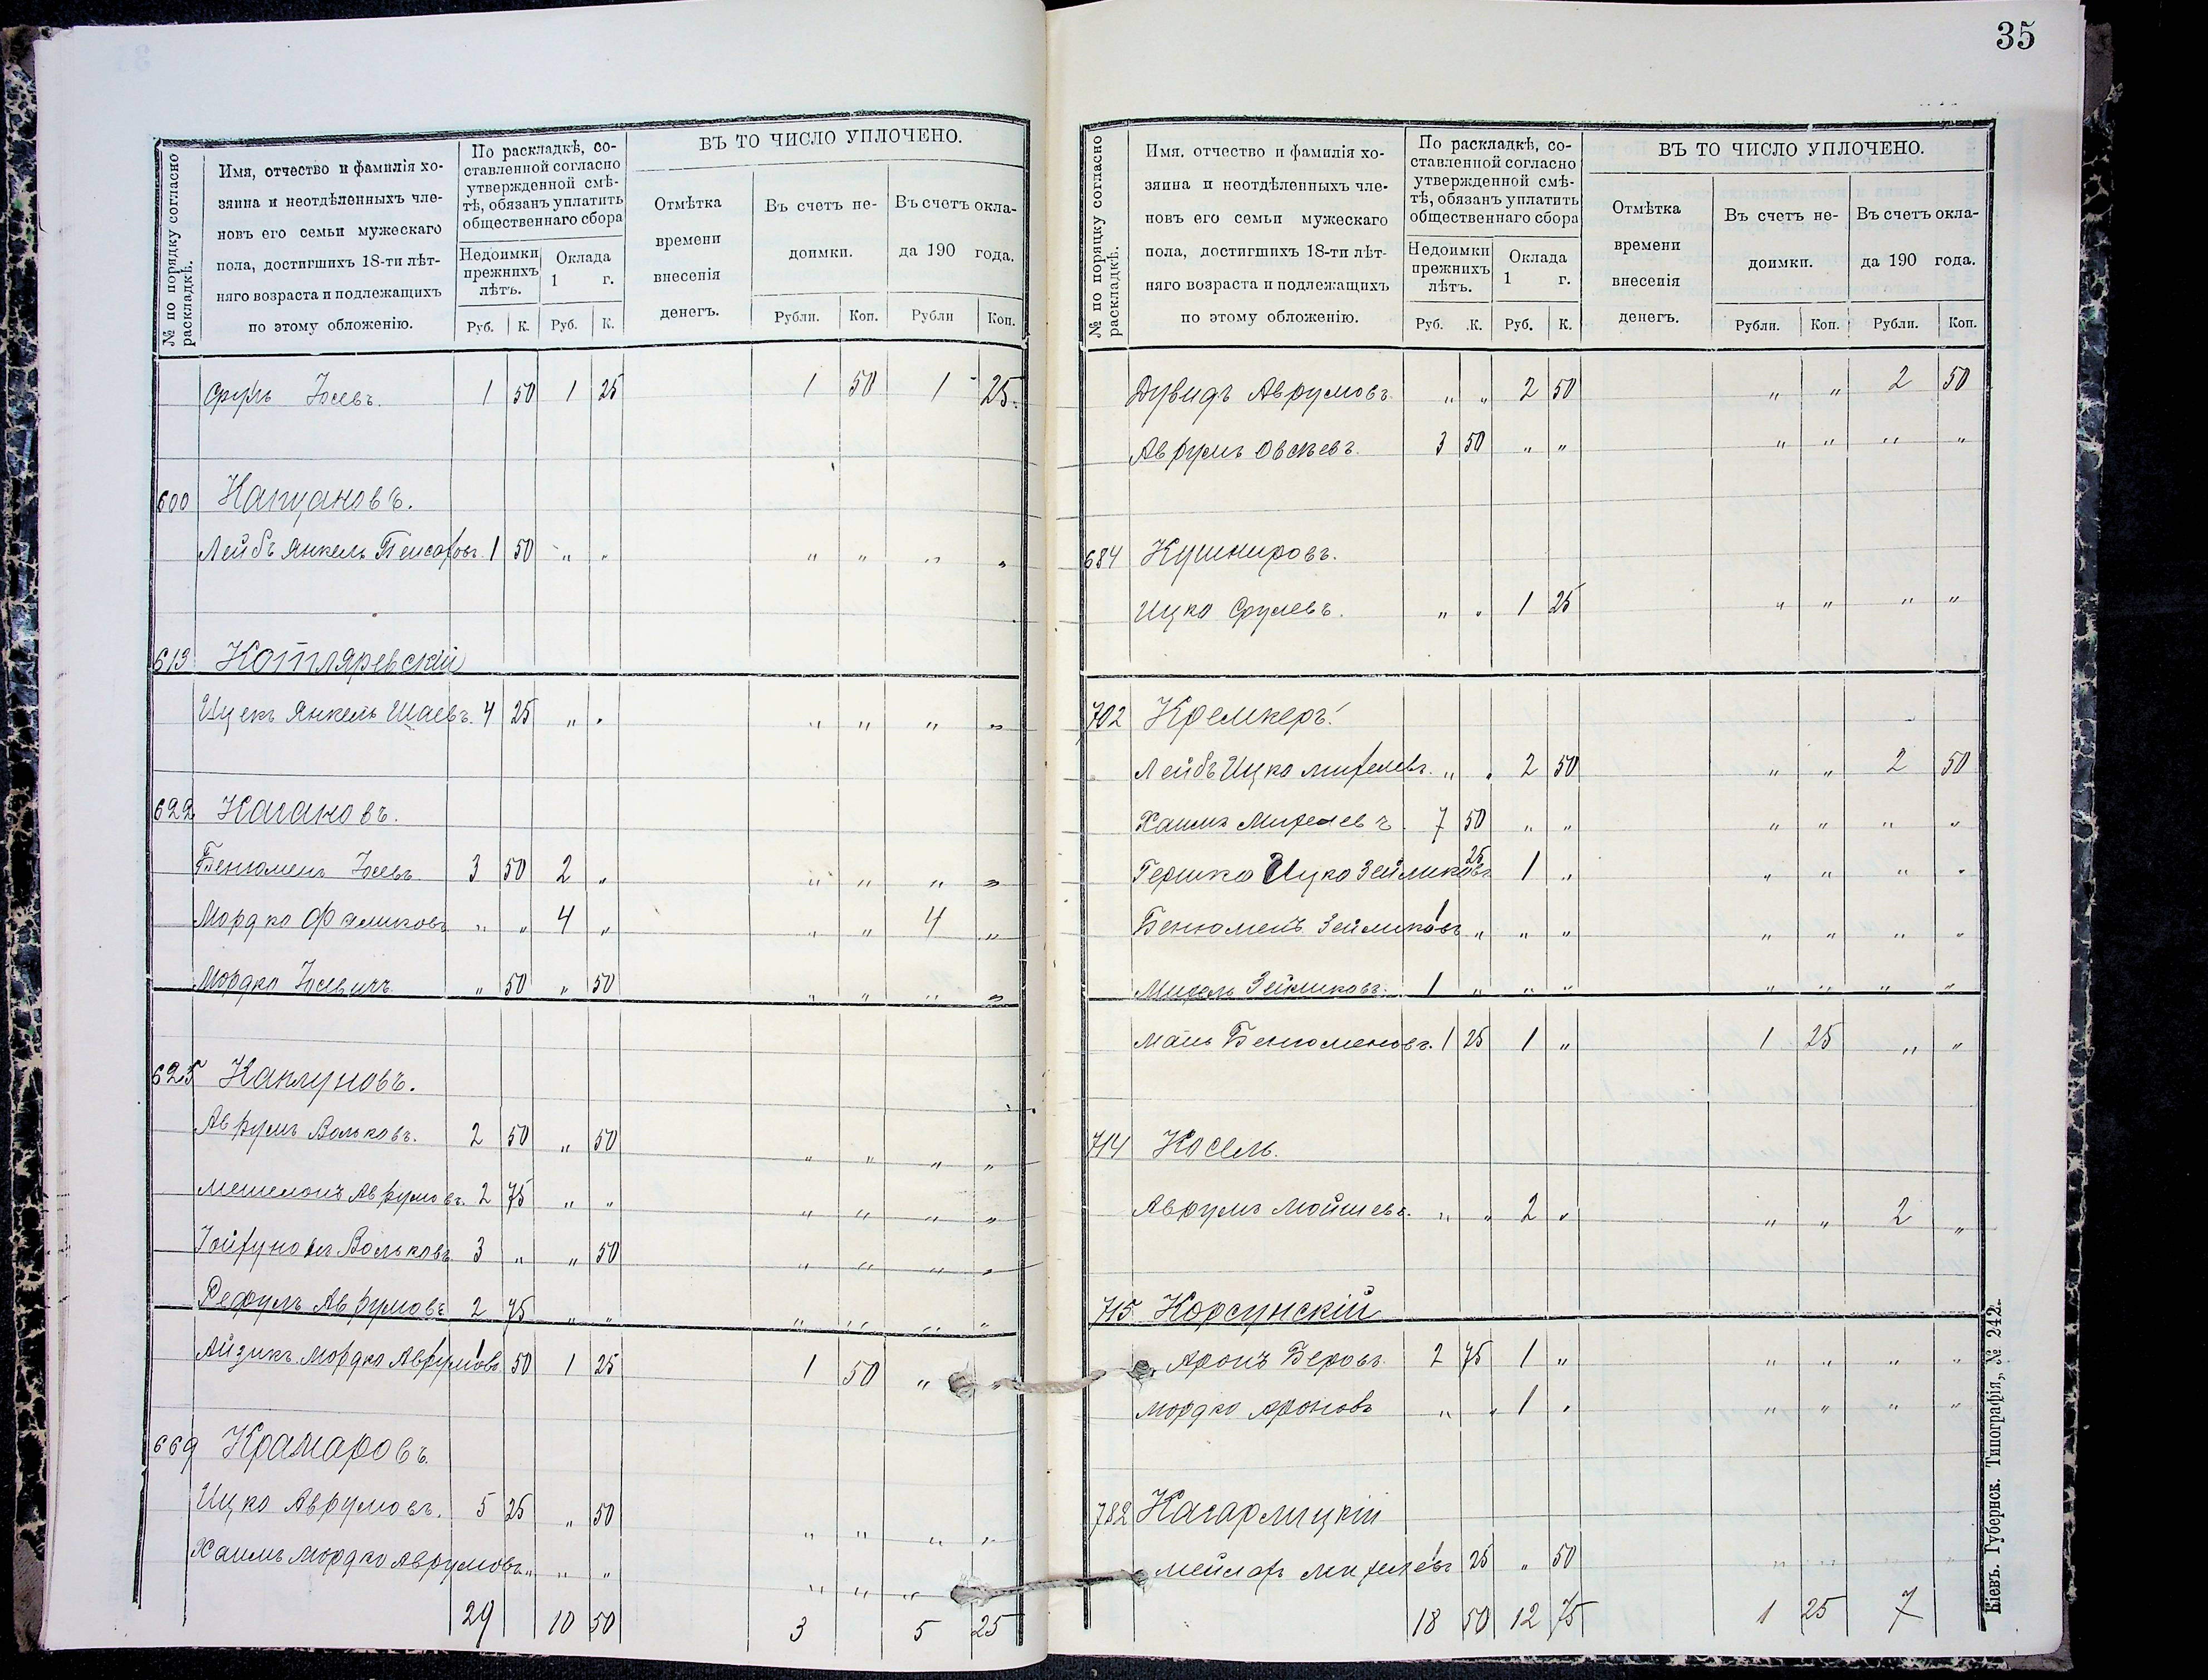 35
№ по порядку согласно раскладкѣ.
Имя, отчество и фамилія хо-
зяина и неотдѣленныхъ чле-
новъ его семьи мужескаго
пола, достигшихъ 18-ти лѣт-
няго возраста и подлежащихъ
по этому обложенію.
По раскладкѣ, со-
ставленной согласно
утвержденной смѣ-
тѣ, обязанъ уплатить
общественнаго сбора
Недоимки прежнихъ лѣтъ.
Оклада 1 г.
Руб. К. Руб. К.
ВЪ ТО ЧИСЛО УПЛОЧЕНО.
Отмѣтка времени внесенія денегъ.
Въ счетъ не-доимки.
Въ счетъ окла-да 190 года.
Рубли. Коп. Рубли Коп.
Сруль Іосевъ. 1 50 1 25 1 50 1 25.
600 Капцановъ.
Лейбъ Янкель 1 50 „ „ „ „ „ „
613 Котляревскій
Ицекъ Янкель Шаевъ. 4 25 „ „ „ „ „ „
622 Кагановъ.
Бенюменъ Іосевъ 3 50 2 „ „ „ „ „
Мордко Фаликовъ „ „ 4 „ „ „ 4 „
Мордко Іосевичъ „ 50 „ 50 „ „ „ „
625 Каплуновъ.
Аврумъ Вольковъ. 2 50 „ 50 „ „ „ „
Авруmовъ. 2 75 „ „ „ „ „ „
Вольковъ 3 „ „ 50 „ „ „ „
Рефулъ Аврумовъ 2 75 „ „ „ „ „ „
Айзикъ Мордко Аврумовъ 1 50 1 25 1 50 „ „
669 Крамаровъ
Ицко Аврумовъ. 5 25 „ 50 „ „ „ „
Хаимъ Мордко Аврумовъ „ „ „ „ „ „ „
29 10 50 3 5 25
№ по порядку согласно раскладкѣ.
Имя, отчество и фамилія хо-
зяина и неотдѣленныхъ чле-
новъ его семьи мужескаго
пола, достигшихъ 18-ти лѣт-
няго возраста и подлежащихъ
по этому обложенію.
По раскладкѣ, со-
ставленной согласно
утвержденной смѣ-
тѣ, обязанъ уплатить
общественнаго сбора
Недоимки прежнихъ лѣтъ.
Оклада 1 г.
Руб. К. Руб. К.
ВЪ ТО ЧИСЛО УПЛОЧЕНО.
Отмѣтка времени внесенія денегъ.
Въ счетъ не-доимки.
Въ счетъ окла-да 190 года.
Рубли. Коп. Рубли. Коп.
Дувидъ Аврумовъ „ „ 2 50 „ „ 2 50
Аврумъ Овсѣевъ. 3 50 „ „ „ „ „ „
684 Кушнировъ.
Ицко Срулевъ. „ „ 1 25 „ „ „ „
702 Кремеръ.
Лейбъ Ицко Михелевъ. „ „ 2 50 „ „ 2 50
Хаимъ Михелевъ 7 50 „ „ „ „ „ „
Гершко Ицко Зейликовъ 25 1 „ „ „ „ „
Бенюменъ Зейликовъ 1 „ „ „ „ „ „ „
Михель Зейликовъ. 1 „ „ „ „ „ „ „
Бенюменовъ. 1 25 1 „ 1 25 „ „
714 Косель.
Аврумъ Мойшевъ. „ „ 2 „ „ „ 2 „
715 Корсунскій
Аронъ Беровъ. 2 75 1 „ „ „ „ „
Мордко Ароновъ „ „ 1 „ „ „ „ „
782 Кагарлицкій
Мейлахъ Михелевъ 1 25 „ 50 „ „ „ „
18 50 12 75 1 25 7
Кіевъ. Губернск. Типографія, № 242.